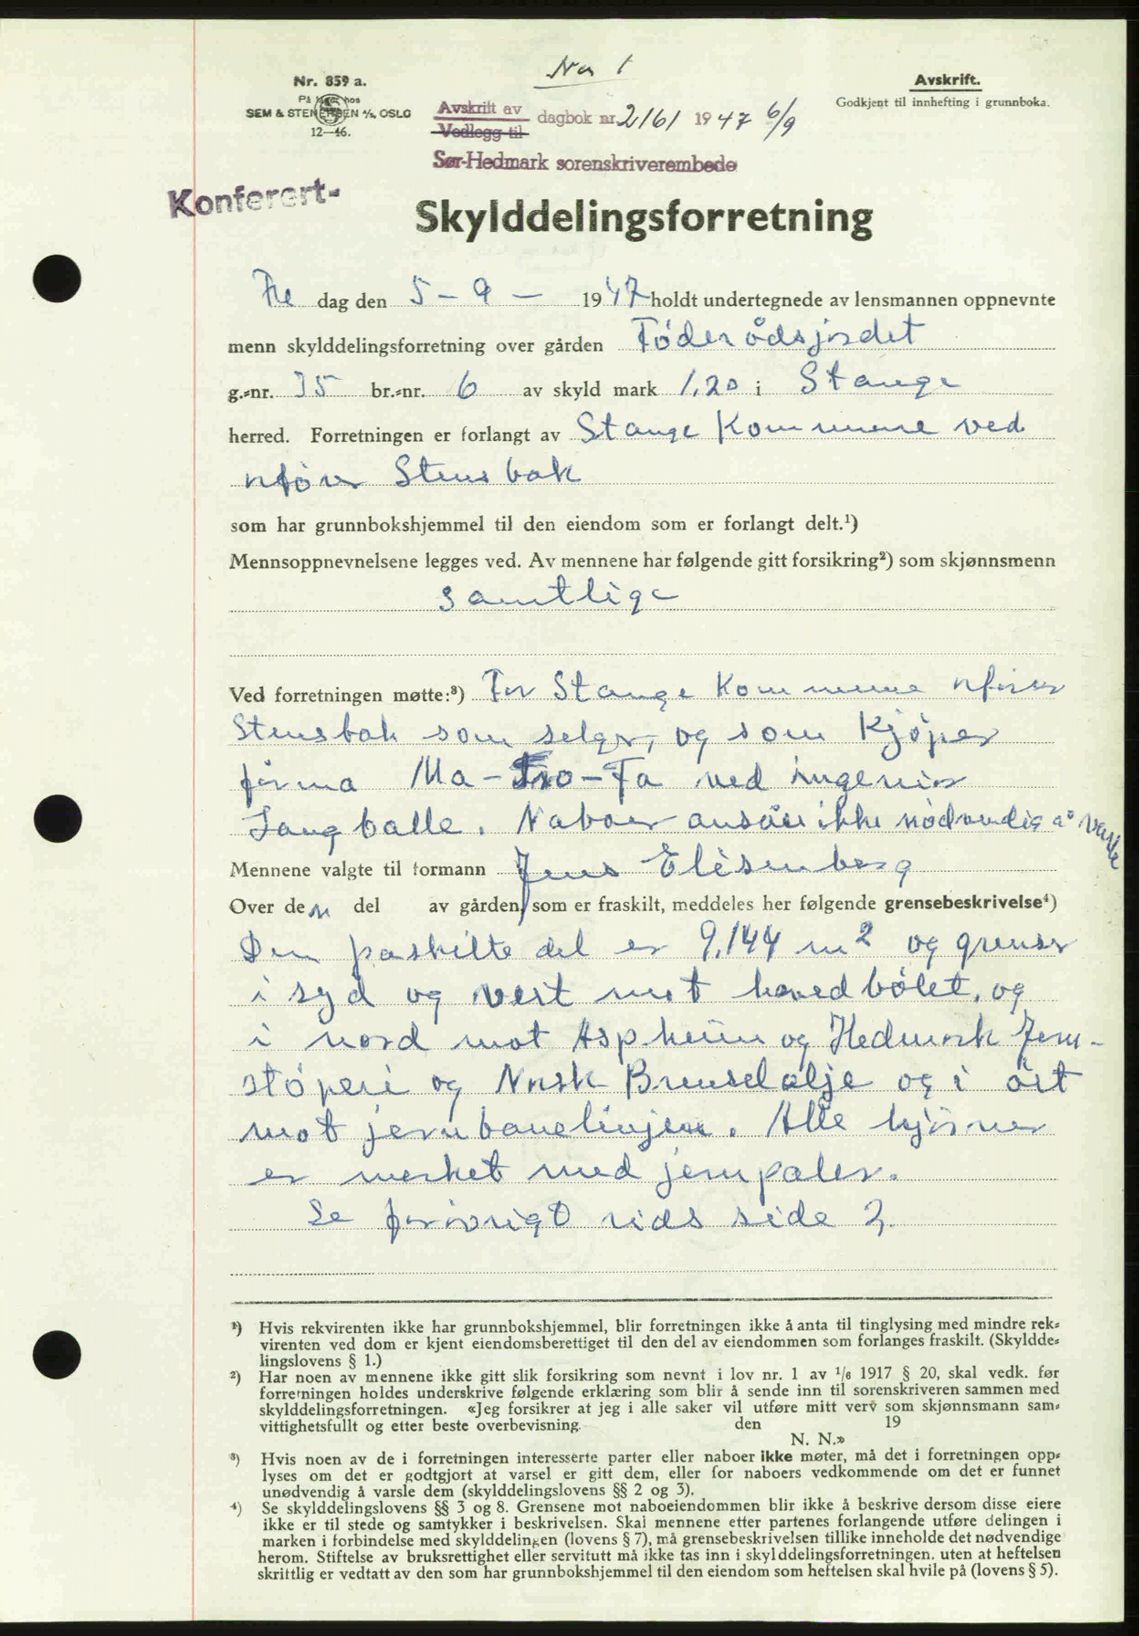 No 1
Nr. 859 a.
På lager hos
SEM & STENERSEN A/S, OSLO
12—46.
Avskrift av
Vedlegg til
dagbok nr 2161 1947 6/9
Sør-Hedmark sorenskriverembede
Avskrift.
Godkjent til innhefting i grunnboka.
Konferert-
Skylddelingsforretning
Fre dag den 5 - 9 - 1947 holdt undertegnede av lensmannen oppnevnte
menn skylddelingsforretning over gården Föderådsjordet
g.-nr. 35 br.-nr. 6 av skyld mark 1,20 i Stange
herred. Forretningen er forlangt av Stange Kommune ved
Stensbak
som har grunnbokshjemmel til den eiendom som er forlangt delt.¹)
Mennsoppnevnelsene legges ved. Av mennene har følgende gitt forsikring²) som skjønnsmenn
samtlige
Ved forretningen møtte:³) For Stange Kommune
Stensbak som selger, og som Kjöper
firma Ma-Tro-Fa ved ingeniör
Langballe. Naboer ansåes ikke nödvendig å varsle
Mennene valgte til formann Jens Elisenberg
Over den del av gården, som er fraskilt, meddeles her følgende grensebeskrivelse⁴)
Den fraskilte del er 9.144 m² og grenser
i syd og vest mot hovedbölet, og
i nord mot Aspheim og Hedmark Jern-
stöperi og Norsk Brenselolje og i öst
mot jernbanelinjen. Alle hjörner
er merket med jernpaler.
Se forövrigt rids side 3.
¹) Hvis rekvirenten ikke har grunnbokshjemmel, blir forretningen ikke å anta til tinglysing med mindre rek-
virenten ved dom er kjent eiendomsberettiget til den del av eiendommen som forlanges fraskilt. (Skyldde-
lingslovens § 1.)
²) Har noen av mennene ikke gitt slik forsikring som nevnt i lov nr. 1 av 1/6 1917 § 20, skal vedk. før
forretningen holdes underskrive følgende erklæring som blir å sende inn til sorenskriveren sammen med
skylddelingsforretningen. «Jeg forsikrer at jeg i alle saker vil utføre mitt verv som skjønnsmann sam-
vittighetsfullt og etter beste overbevisning. den 19
N. N.»
³) Hvis noen av de i forretningen interesserte parter eller naboer ikke møter, må det i forretningen opp-
lyses om det er godtgjort at varsel er gitt dem, eller for naboers vedkommende om det er funnet
unødvendig å varsle dem (skylddelingslovens §§ 2 og 3).
⁴) Se skylddelingslovens §§ 3 og 8. Grensene mot naboeiendommen blir ikke å beskrive dersom disse eiere
ikke er til stede og samtykker i beskrivelsen. Skal mennene etter partenes forlangende utføre delingen i
marken i forbindelse med skylddelingen (lovens § 7), må grensebeskrivelsen tillike inneholde det nødvendige
herom. Stiftelse av bruksrettighet eller servitutt må ikke tas inn i skylddelingsforretningen, uten at heftelsen
skrittlig er vedtatt av den som har grunnbokshjemmel til den eiendom som heftelsen skal hvile på (lovens § 5).